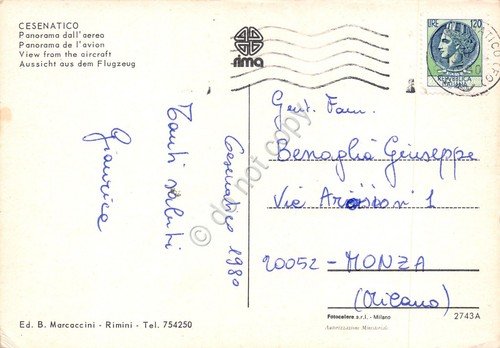 CESENATICO
Panorama dall'aereo
Panorama de l'avion
View from the aircraft
Aussicht aus dem Flugzeug
rima
LIRE 120
Gent. Fam.
Benaglia Giuseppe
Via 1
20052 - MONZA
(Milano)
Cesenatico 1980
Tanti saluti
Gianrica
do not copy
Ed. B. Marcaccini - Rimini - Tel. 754250
Fotocelere s.r.l. - Milano
2743A
Autorizzazione Ministeriale